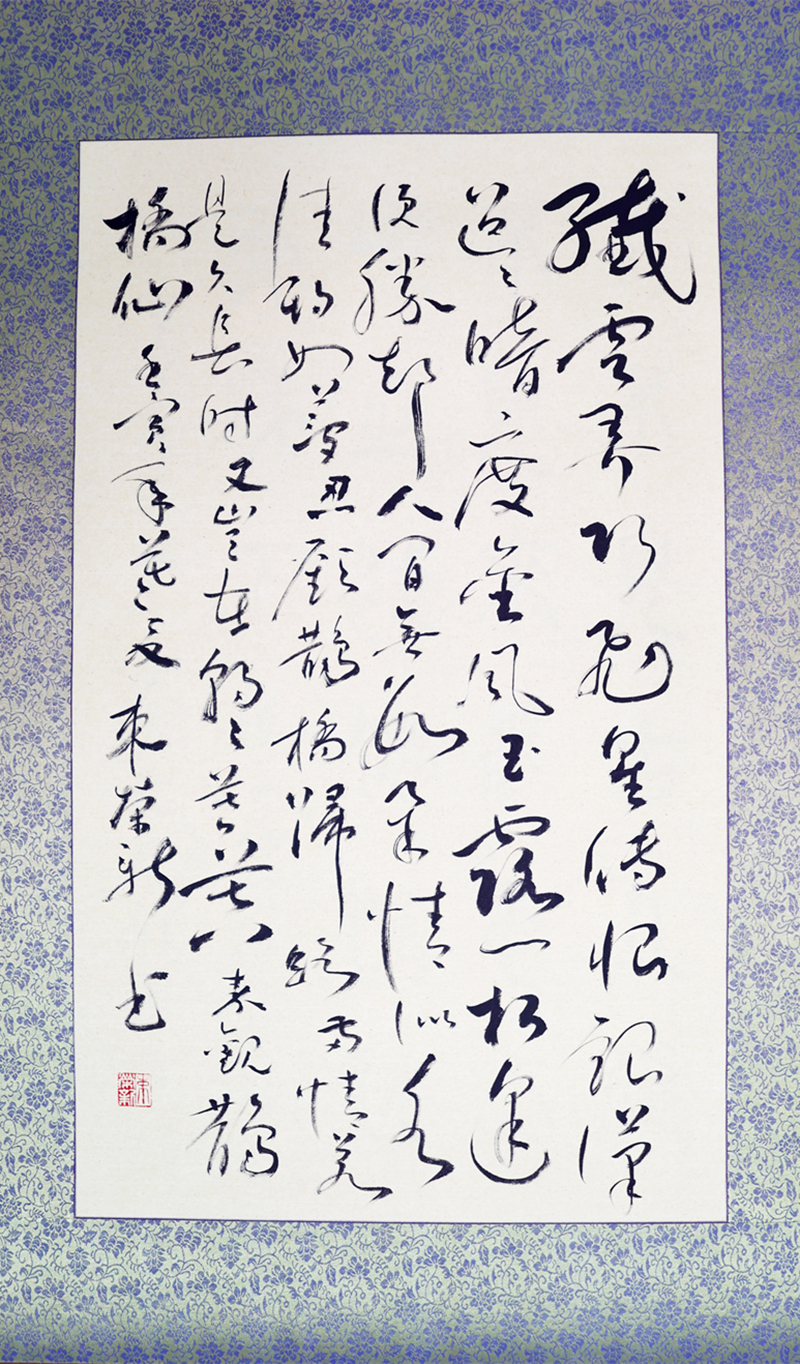 纖雲弄巧飛星傳恨銀漢
迢々暗度金風玉露一相逢
便勝卻人間無數柔情似水
佳期如夢忍顧鵲橋歸路兩情若
是久長時又豈在朝々暮暮 秦觀鵲
橋仙 壬寅年暮夏 榮新書